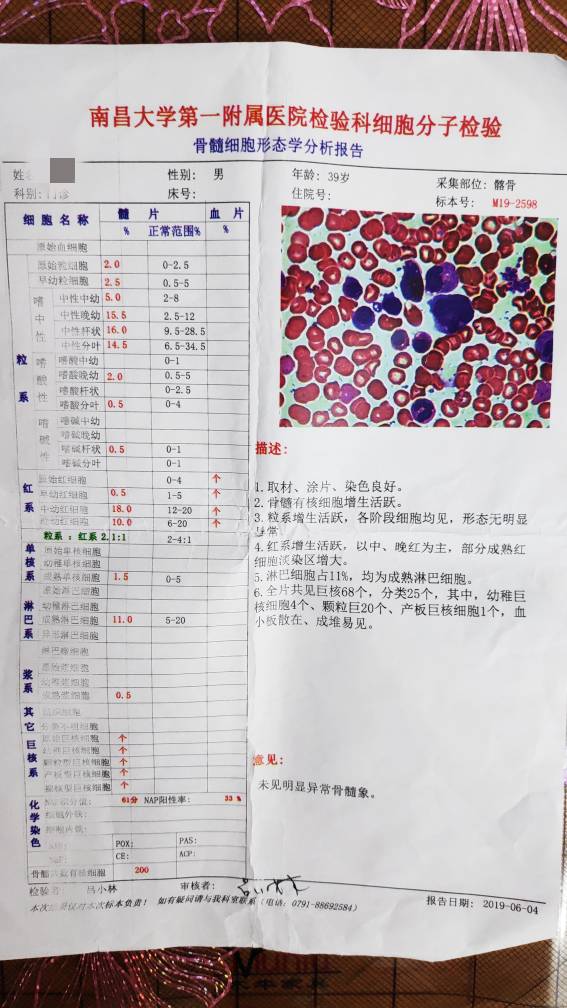 南昌大学第一附属医院检验科细胞分子检验
骨髓细胞形态学分析报告
性别: 男
年龄: 39岁
采集部位: 髂骨
科别: 门诊
床号:
住院号:
标本号: M19-2598
细胞名称 髓片 血片
% 正常范围% %
原始血细胞
粒系
原始粒细胞 2.0 0-2.5
早幼粒细胞 2.5 0.5-5
嗜中性
中性中幼 5.0 2-8
中性晚幼 15.5 2.5-12
中性杆状 16.0 9.5-28.5
中性分叶 14.5 6.5-34.5
嗜酸性
嗜酸中幼 0-1
嗜酸晚幼 2.0 0.5-5
嗜酸杆状 0-2.5
嗜酸分叶 0.5 0-4
嗜碱性
嗜碱中幼
嗜碱晚幼
嗜碱杆状 0.5 0-1
嗜碱分叶 0-1
红系
原始红细胞 0-4 个
早幼红细胞 0.5 1-5 个
中幼红细胞 18.0 12-20 个
晚幼红细胞 10.0 6-20 个
粒系:红系 2.1:1 2-4:1
单核系
原始单核细胞
幼稚单核细胞
成熟单核细胞 1.5 0-5
淋巴系
原始淋巴细胞
幼稚淋巴细胞
成熟淋巴细胞 11.0 5-20
异形淋巴细胞
浆系
原始浆细胞
幼稚浆细胞
成熟浆细胞 0.5
其它
分类不明细胞
巨核系
原始巨核细胞 个
幼稚巨核细胞 个
颗粒型巨核细胞 个
产板型巨核细胞 个
裸核型巨核细胞 个
化学染色
NAP积分值: 61分 NAP阳性率: 33 %
细胞外铁:
细胞内铁:
POX: PAS:
CE: ACP:
骨髓共数有核细胞 200
描述:
1.取材、涂片、染色良好。
2.骨髓有核细胞增生活跃。
3.粒系增生活跃,各阶段细胞均见,形态无明显
异常。
4.红系增生活跃,以中、晚红为主,部分成熟红
细胞淡染区增大。
5.淋巴细胞占11%,均为成熟淋巴细胞。
6.全片共见巨核68个,分类25个,其中,幼稚巨
核细胞4个、颗粒巨20个、产板巨核细胞1个,血
小板散在、成堆易见。
意见:
未见明显异常骨髓象。
检验者: 吕小林 审核者: 报告日期: 2019-06-04
本次结果仅对本次标本负责! 如有疑问请与我科室联系(电话: 0791-88692584)